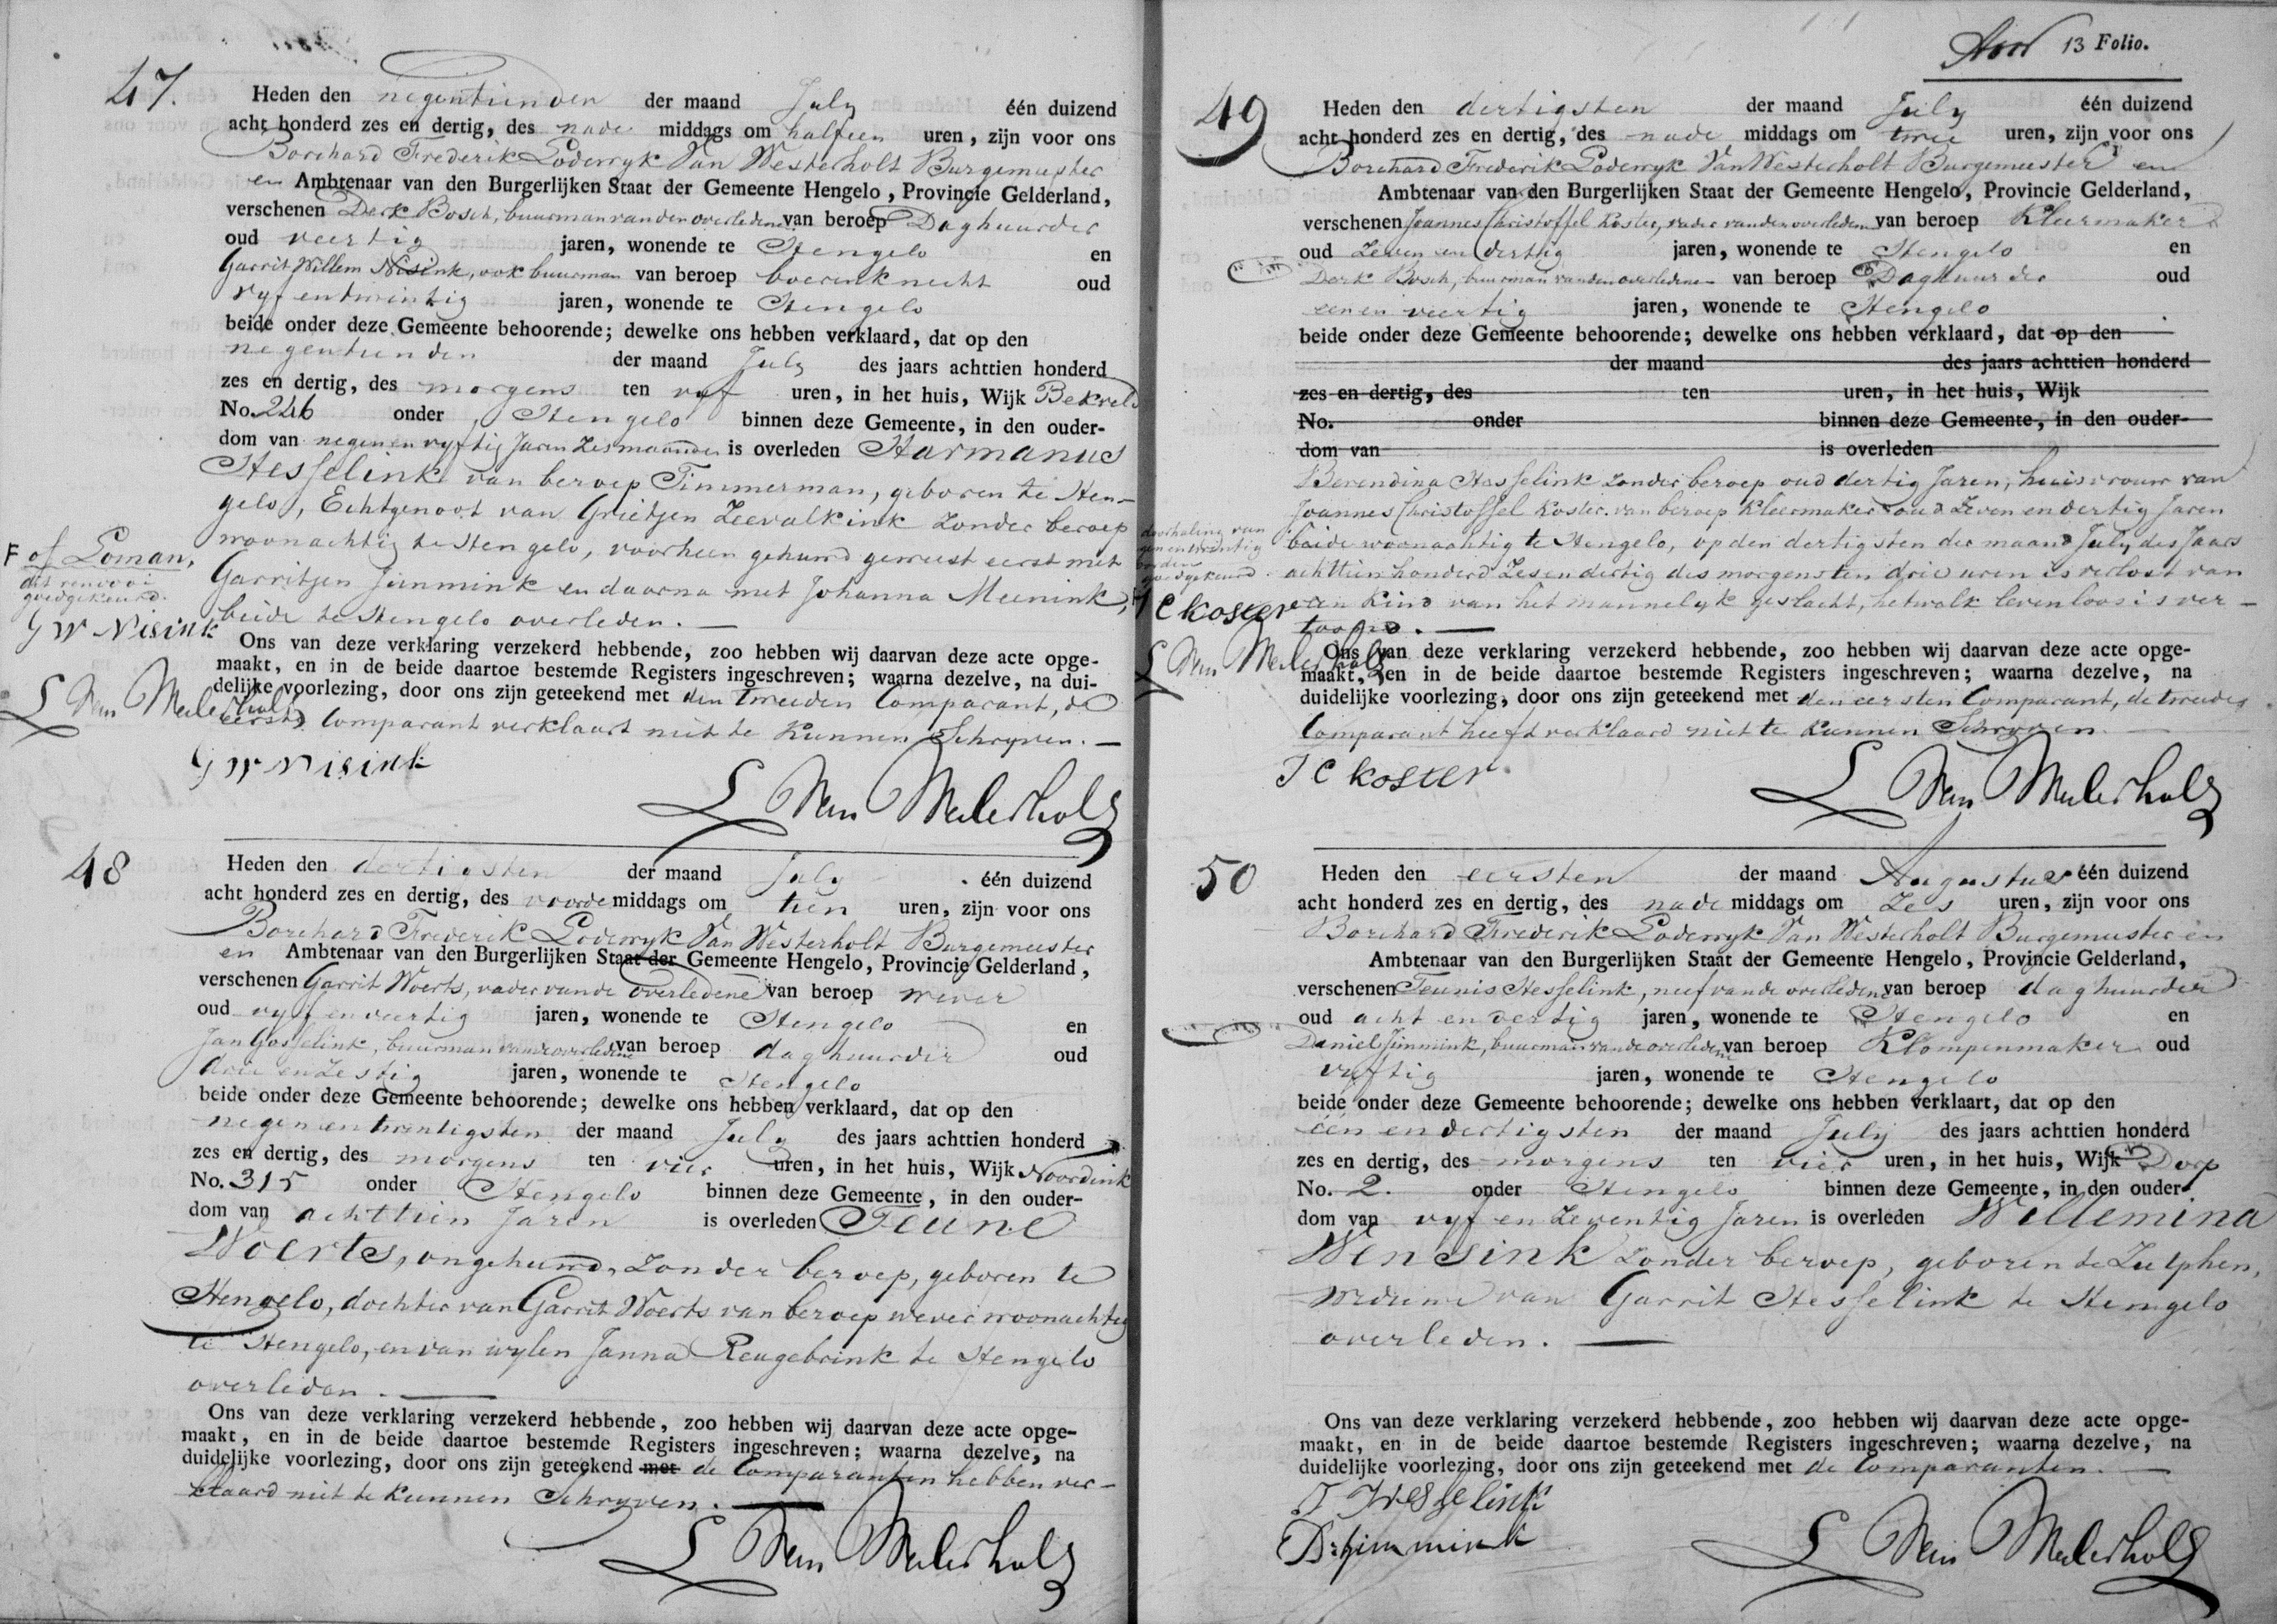 47.
Heden den negentienden der maand July één duizend
acht honderd zes en dertig, des nade middags om halfeen uren, zijn voor ons
Borchard Frederik Loderryk Van Westerholt Burgemeester
en Ambtenaar van den Burgerlijken Staat der Gemeente Hengelo, Provincie Gelderland,
verschenen Derk Bosch, buurman van den overledene van beroep Daghuurder
oud veertig jaren, wonende te Hengelo en
Garrit Willem Nisink, ook buurman van beroep boerenknecht oud
vyf en twintig jaren, wonende te Hengelo
beide onder deze Gemeente behoorende; dewelke ons hebben verklaard, dat op den
negentienden der maand July des jaars achttien honderd
zes en dertig, des morgens ten vyf uren, in het huis, Wijk Bekveld
No. 246 onder Hengelo binnen deze Gemeente, in den ouder-
dom van negen en vyftig Jaren zes maanden is overleden Harmanus
Hesselink van beroep Timmerman, geboren te Hen-
gelo, Echtgenoot van Grietjen Zeevalkink zonder beroep
woonachtig te Hengelo, voorheen gehuwd geweest eerst met
Garritjen Jimmink en daarna met Johanna Meenink,
beide te Hengelo overleden.
F of Loman,
dit renvooi
goedgekeurd.
G W Nisink
Ons van deze verklaring verzekerd hebbende, zoo hebben wij daarvan deze acte opge-
maakt, en in de beide daartoe bestemde Registers ingeschreven; waarna dezelve, na dui-
delijke voorlezing, door ons zijn geteekend met den tweeden Comparant, de
eerste Comparant verklaart niet te kunnen Schryven.
G W Nisink
48
Heden den dertigsten der maand July één duizend
acht honderd zes en dertig, des voorde middags om tien uren, zijn voor ons
Borchard Frederik Loderryk Van Westerholt Burgemeester
en Ambtenaar van den Burgerlijken Staat der Gemeente Hengelo, Provincie Gelderland,
verschenen Garrit Woerts, vader van de overledene van beroep wever
oud vyf en veertig jaren, wonende te Hengelo en
Jan Gosselink, buurman van de overledene van beroep daghuurder oud
drie en zestig jaren, wonende te Hengelo
beide onder deze Gemeente behoorende; dewelke ons hebben verklaard, dat op den
negen en twintigsten der maand July des jaars achttien honderd
zes en dertig, des morgens ten vier uren, in het huis, Wijk Noordink
No. 315 onder Hengelo binnen deze Gemeente, in den ouder-
dom van achttien Jaren is overleden Teune
Woerts, ongehuwd, zonder beroep, geboren te
Hengelo, dochter van Garrit Woerts van beroep wever woonachtig
te Hengelo, en van wylen Janna Reugebrink te Hengelo
overleden.
Ons van deze verklaring verzekerd hebbende, zoo hebben wij daarvan deze acte opge-
maakt, en in de beide daartoe bestemde Registers ingeschreven; waarna dezelve, na
duidelijke voorlezing, door ons zijn geteekend met de Comparanten hebben ver-
klaard niet te kunnen Schryven.
13 Folio.
49
Heden den dertigsten der maand July één duizend
acht honderd zes en dertig, des nade middags om twee uren, zijn voor ons
Borchard Frederik Loderryk Van Westerholt Burgemeester en
Ambtenaar van den Burgerlijken Staat der Gemeente Hengelo, Provincie Gelderland,
verschenen Joannes Christoffel Koster, vader van den overledene van beroep Kleermaker
oud zeven en dertig jaren, wonende te Hengelo en
Derk Bosch, buurman van den overledene van beroep Daghuurder oud
een en veertig jaren, wonende te Hengelo
beide onder deze Gemeente behoorende; dewelke ons hebben verklaard, dat op den
der maand des jaars achttien honderd
zes en dertig, des ten uren, in het huis, Wijk
No. onder binnen deze Gemeente, in den ouder-
dom van is overleden
Berendina Hesselink zonder beroep oud dertig Jaren, huisvrouw van
Joannes Christoffel Koster van beroep Kleermaker oud zeven en dertig Jaren
beide woonachtig te Hengelo, op den dertigsten der maand July des Jaars
achttien honderd zes en dertig des morgens ten drie uren is verlost van
een Kind van het mannelyk geslacht, hetwelk levenloos is ver-
toond.
doorhaling van
goedgekeurd.
J C koster
Ons van deze verklaring verzekerd hebbende, zoo hebben wij daarvan deze acte opge-
maakt, en in de beide daartoe bestemde Registers ingeschreven; waarna dezelve, na
duidelijke voorlezing, door ons zijn geteekend met den eersten Comparant, de tweede
Comparant heeft verklaard niet te kunnen Schryven.
J C koster
50
Heden den eersten der maand Augustus één duizend
acht honderd zes en dertig, des nade middags om zes uren, zijn voor ons
Borchard Frederik Loderryk Van Westerholt Burgemeester en
Ambtenaar van den Burgerlijken Staat der Gemeente Hengelo, Provincie Gelderland,
verschenen Teunis Hesselink, neef van de overledene van beroep daghuurder
oud acht en dertig jaren, wonende te Hengelo en
Daniel Jimmink, buurman van de overledene van beroep Klompenmaker oud
vyftig jaren, wonende te Hengelo
beide onder deze Gemeente behoorende; dewelke ons hebben verklaart, dat op den
één en dertigsten der maand July des jaars achttien honderd
zes en dertig, des morgens ten vier uren, in het huis, Wijk Dorp
No. 2. onder Hengelo binnen deze Gemeente, in den ouder-
dom van vyf en zeventig Jaren is overleden Willemina
Wensink zonder beroep, geboren te Zutphen,
weduwe van Garrit Hesselink te Hengelo
overleden.
Ons van deze verklaring verzekerd hebbende, zoo hebben wij daarvan deze acte opge-
maakt, en in de beide daartoe bestemde Registers ingeschreven; waarna dezelve, na
duidelijke voorlezing, door ons zijn geteekend met de Comparanten.
T Hesselink
D: Jimmink